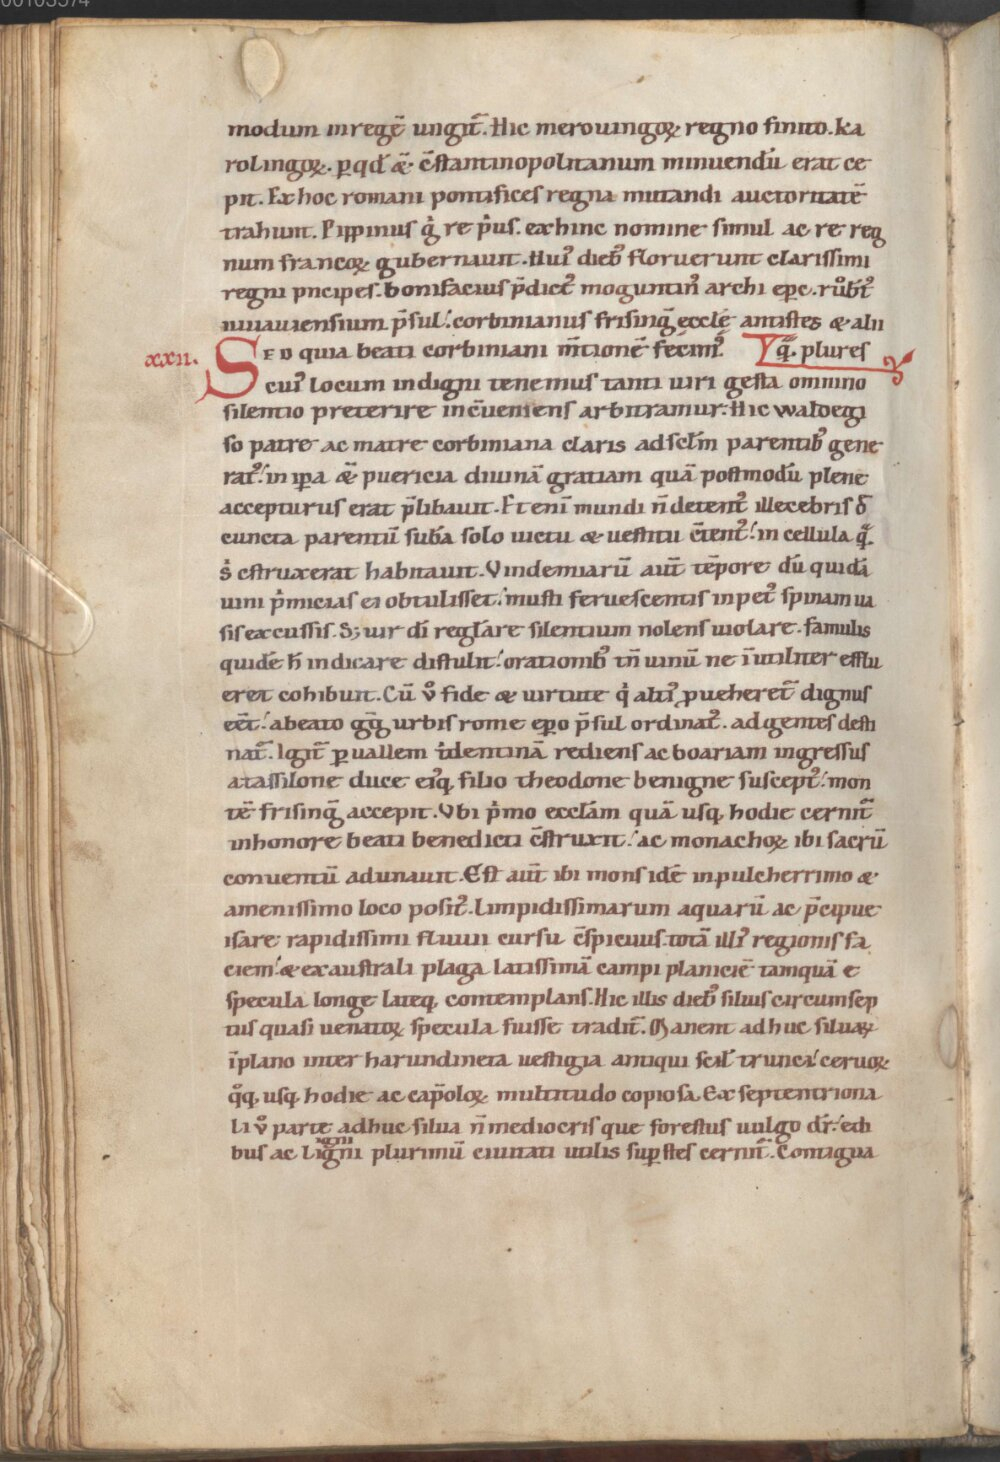 modum in regē ungit̄. Hic merouingoꝝ regno finito. ka
rolingoꝝ. ꝑ qd̄ &̄ c̄stantinopolitanum minuendū erat ce
pit. Ex hoc romani pontifices regna mutandi auctoritatē
trahunt. Pippinus g̊ re p̓us. exhinc nomine simul ac re reg
num francoꝝ gubernauit. Hui᷒ dieb᷒ floruerunt clarissimi
regni pncipes. bonifacius p̄dict᷒ moguntin᷒ archi ep̄c. růb̄t᷒
iuuauiensium p̄sul. corbinianus frisinḡ ecclē antistes & alii
q̄. plures
xxii.
SED quia beati corbiniani m̄tionē fecim᷒.
cui᷒ locum indigni tenemus tanti uiri gesta omnino
silentio preterire inc̄ueniens arbitramur. Hic waldegi
so patre ac matre corbiniana claris ad scl̄m parentib᷒ gene
rat᷒. in ip̄a &̄ puericia diuinā gratiam quā postmodū plene
accepturus erat p̄libauit. Etenī mundi n̄ detent᷒ illecebris
cuncta parentū sub̄a solo uictu & uestitu c̄tent᷒. in cellula q̄.
s̓ c̄struxerat habitauit. Vindemiarū aut̄ tēpore dū quidā
uini p̓micias ei obtulisset. musti feruescentis inpet᷒ spinam ua
sis excussis. S; uir dī regl̄are silentium nolens uiolare. famulis
quidē h̄ indicare distulit. orationib᷒ tn̄ uinū ne īutiliter efflu
eret cohibuit. Cū v̊ fide & uirtute q̓ alti᷒ ꝓueheret̄ dignus
eēt. a beato gg̅ urbis rome ep̄o p̄sul ordinat᷒. ad gentes desti
nat̄. Igit̄ ꝑ uallem t̓dentinā rediens ac boariam ingressus
a tassilone duce ei᷒q, filio theodone benigne suscept᷒. mon
tē frisinḡ accepit. Vbi p̓mo ecclām quā usq, hodie cernit̄
in honore beati benedicti c̄struxit. ac monachoꝝ ibi sacrū
conuentū adunauit. Est aut̄ ibi mons idē in pulcherrimo &
amenissimo loco posit᷒. Limpidissimarum aquarū ac p̄cipue
isare rapidissimi fluuii cursu c̄spicuus. totā illi᷒ regionis fa
ciem. & ex australi plaga latissimā campi planiciē tamquā e
specula longe lateq, contemplans. Hic illis dieb᷒ siluis circumsep
tus quasi uenatoꝝ specula fuisse tradit̄. Manent adhuc siluaꝝ
ī plano inter harundineta uestigia antiqui scil̄ trunci. ceruoꝝ
q̊q, usq, hodie ac cap̄oloꝝ, multitudo copiosa. Ex septentriona
li v̊ parte adhuc silua n̄ mediocris que forestus uulgo dr̄. edi
bus ac ligni plurimū ciuitati utilis suꝑstes cernit̄. Contigua
igni